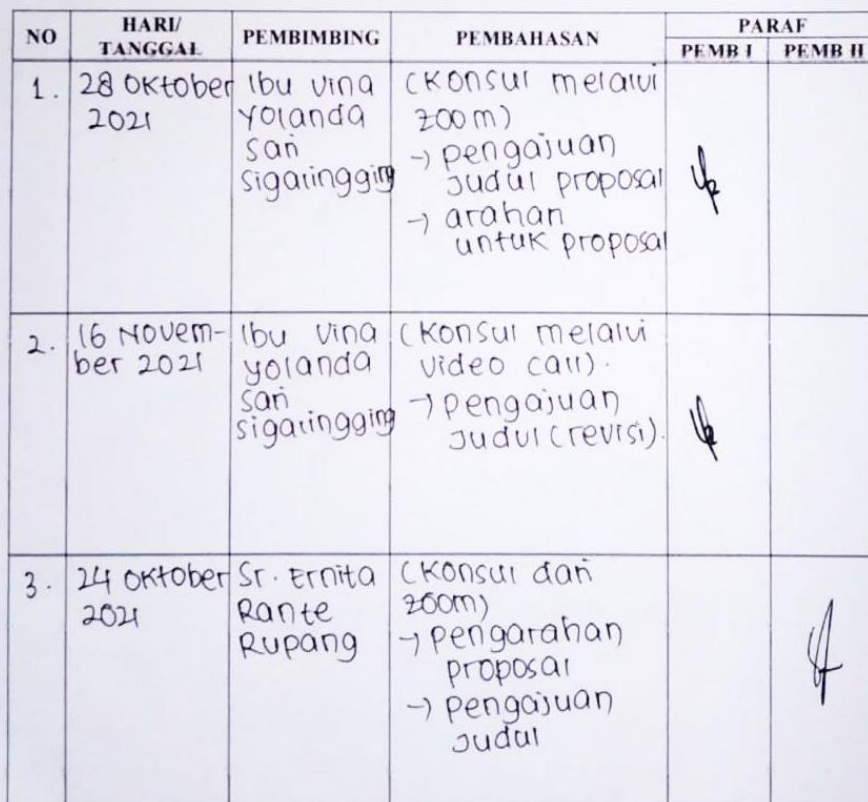 NO HARI/ TANGGAL PEMBIMBING PEMBAHASAN PARAF
PEMB I PEMB II
1. 28 Oktober 2021
Ibu Vina
Yolanda
Sari
Sigalingging
(Konsul melalui
zoom)
→ pengajuan
judul proposal
→ arahan
untuk proposal
2. 16 Novem-
ber 2021
Ibu Vina
Yolanda
Sari
Sigalingging
(Konsul melalui
video call).
→ pengajuan
judul (revisi).
3. 24 Oktober
2021
Sr. Ernita
Rante
Rupang
(Konsul dari
zoom)
→ pengarahan
proposal
→ pengajuan
judul